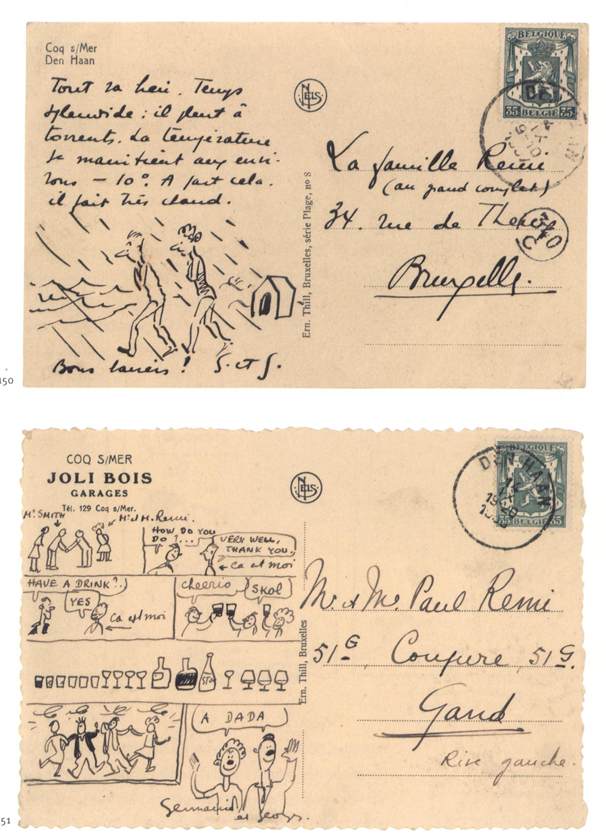 Coq s/Mer
Den Haan
Tout va bien. Temps
splendide : il pleut à
torrents. La température
se maintient aux envi-
rons – 10°. A part cela,
il fait très chaud.
Bons baisers ! G. et G.
Ern. Thill, Bruxelles, série Plage, no 8
NELS
BELGIQUE
35 BELGIË 35
La famille Remi
(au grand complet)
34. rue de
Bruxelles.
150
COQ S/MER
JOLI BOIS
GARAGES
Tél. 129 Coq s/Mer.
Mr SMITH
Mr J.M. Remi.
HOW DO YOU
DO ?...
VERY WELL,
THANK YOU.
Ca et moi
HAVE A DRINK ?
YES
Ca et moi
Cheerio
SKOL
A DADA
Germaine et Georges.
Ern. Thill, Bruxelles
NELS
BELGIQUE
35 BELGIË 35
DEN HAAN
Mr & Me Paul Remi
51G, Coupure, 51G.
Gand
Rive gauche.
51